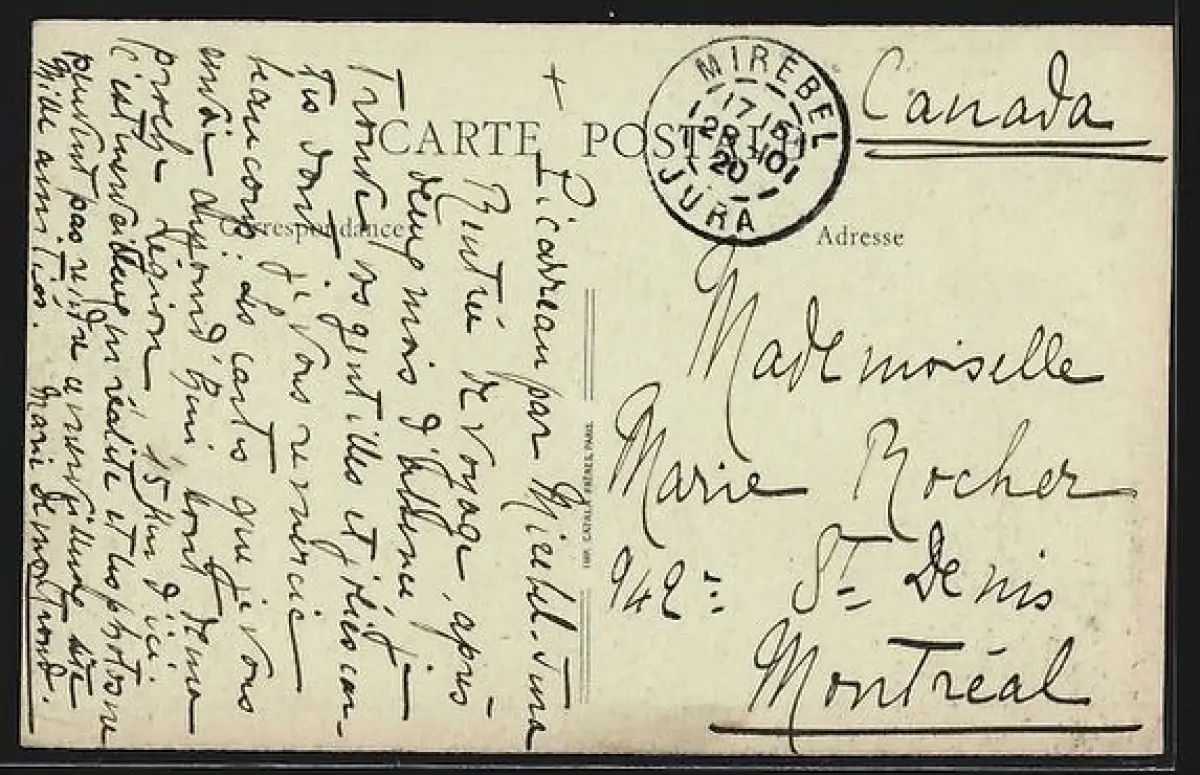 CARTE POSTALE
Correspondance
Adresse
MIREBEL
1715
28-10
20
JURA
Canada
Mademoiselle
Marie Rocher
942 = St Denis
Montréal
IMP. CATALA FRÈRES, PARIS
+
Picarreau par Mirebel-Jura
Rintrée de voyage, après
deux mois d'absence je
Trouve vos gentilles et jolies car-
tes dont je vous remercie
beaucoup. Les cartes que je vous
envoie aujourd'hui sont de ma
proche région 15 Km d'ici.
C'est merveilleux en réalité et les photos ne
peuvent pas rendre ce merveilleux site
Mille amitiés. Marie